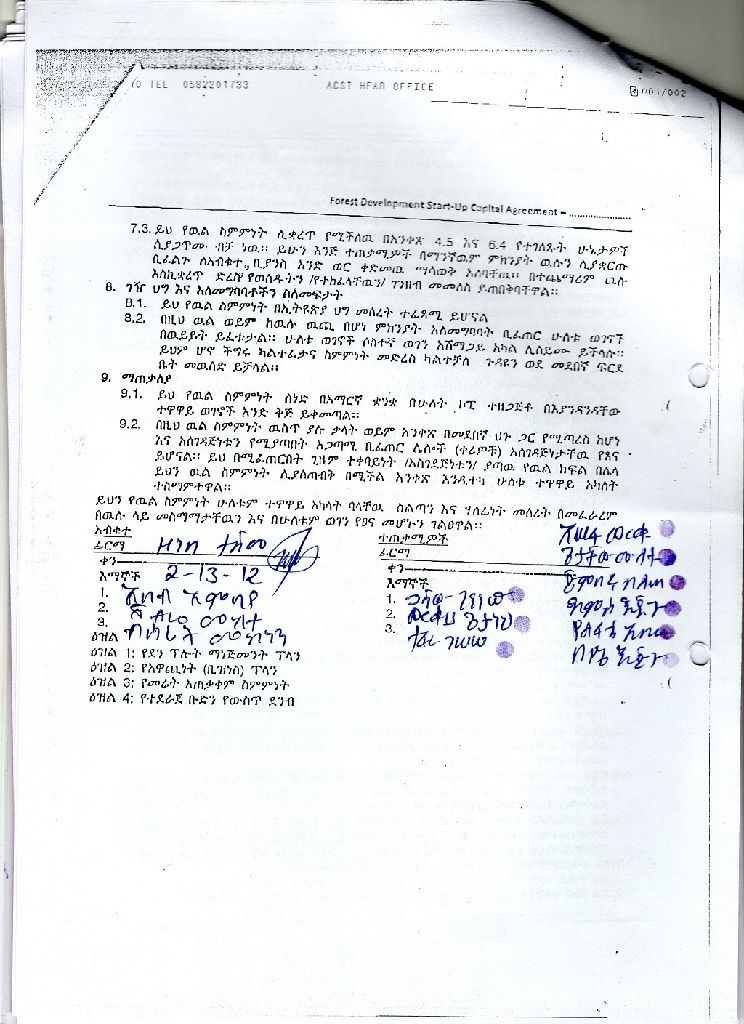 TEL 0582201733 ACST HEAD OFFICE 001/002
Forest Development Start-Up Capital Agreement – ..................
7.3. ይህ የዉል ስምምነት ሊቋረጥ የሚችለዉ በአንቀጽ 4.5 እና 6.4 የተገለጹት ሁኔታዎች
ሲያጋጥሙ ብቻ ነዉ። ይሁን እንጅ ተጠቃሚዎች በማንኛዉም ምክንያት ዉሉን ሊያቋርጡ
ቢፈልጉ ለአብቁተ, ቢያንስ አንድ ወር ቀድመዉ ማሳወቅ አለባቸዉ። በተጨማሪም ዉሉ
እስኪቋረጥ ድረስ የወሰዱትን /የተከፈላቸዉን/ ገንዘብ መመለስ ይጠበቅባቸዋል።
8. ግዥ ህግ እና አለመግባባቶችን ስለመፍታት
8.1. ይህ የዉል ስምምነት በኢትዮጵያ ህግ መሰረት ተፈጻሚ ይሆናል
8.2. በዚህ ዉል ወይም ከዉሉ ዉጪ በሆነ ምክንያት አለመግባባት ቢፈጠር ሁለቱ ወገኖች
በዉይይት ይፈቱታል። ሁለቱ ወገኖች ሶስተኛ ወገን አሸማጋይ አካል ሊሰይሙ ይችላሉ።
ይህም ሆኖ ችግሩ ካልተፈታና ስምምነት መድረስ ካልተቻለ ጉዳዩን ወደ መደበኛ ፍርድ
ቤት መዉሰድ ይቻላል።
9. ማጠቃለያ
9.1. ይህ የዉል ስምምነት ሰነድ በአማርኛ ቋንቋ በሁለት ኮፒ ተዘጋጅቶ በእያንዳንዳቸው
ተዋዋይ ወገኖች አንድ ቅጅ ይቀመጣል።
9.2. በዚህ ዉል ስምምነት ዉስጥ ያሉ ቃላት ወይም አንቀጽ በመደበኛ ህጉ ጋር የሚጣረስ ከሆነ
እና አስገዳጅነቱን የሚያጣበት አጋጣሚ ቢፈጠር ሌሎች (ቀሪዎቹ) አስገዳጅነታቸዉ የጸና
ይሆናል። ይህ በሚፈጠርበት ጊዜም ተቀባይነት /አስገዳጅነቱን/ ያጣዉ የዉል ክፍል በሌላ
ይህን ዉል ስምምነት ሊያስጠብቅ በሚችል አንቀጽ እንዲተካ ሁለቱ ተዋዋይ አካላት
ተስማምተዋል።
ይህን የዉል ስምምነት ሁለቱም ተዋዋይ አካላት ባላቸዉ ስልጣን እና ሃላፊነት መሰረት በመፈራረም
በዉሉ ላይ መስማማታቸዉን እና በሁለቱም ወገን የፀና መሆኑን ገልፀዋል።
አብቁተ ተጠቃሚዎች
ፊርማ ፊርማ
ቀን 2-13-12 ቀን
እማኞች እማኞች
1. 1.
2. 2.
3. 3.
ዕዝል
ዕዝል 1: የደን ፕሎት ማኔጅመንት ፕላን
ዕዝል 2: የአዋጪነት (ቢዝነስ) ፕላን
ዕዝል 3: የመሬት አጠቃቀም ስምምነት
ዕዝል 4: የተደራጀ ቡድን የውስጥ ደንብ